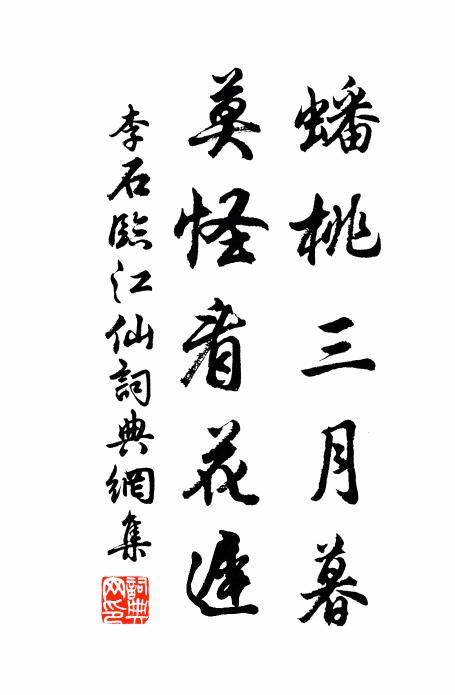 蟠桃三月暮
莫怪看花遲
李石臨江仙詞典網集
詞典網印